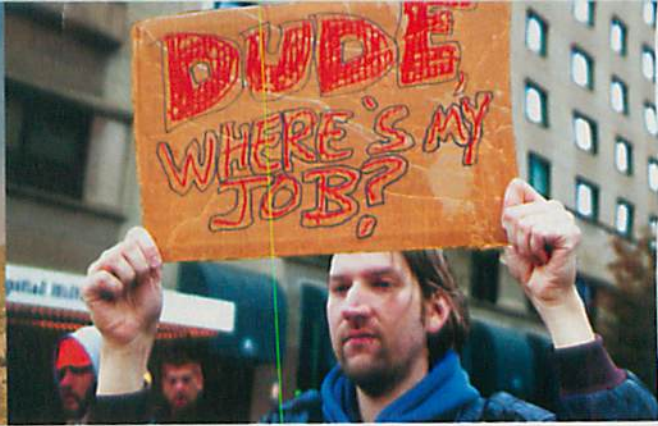 DUDE,
WHERE'S MY
JOB?